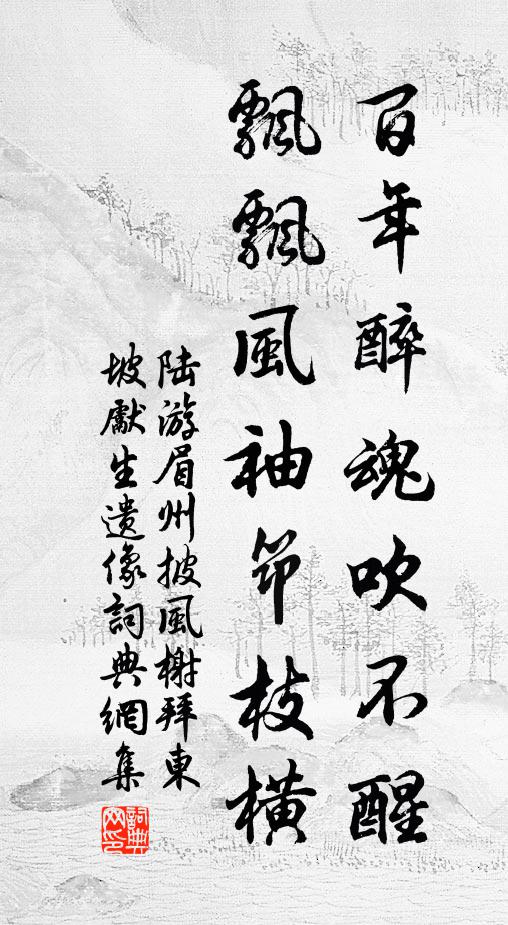 百年醉魂吹不醒
飄飄風袖筇枝橫
陆游眉州披風榭拜東
坡先生遺像詞典網集
詞典
网印